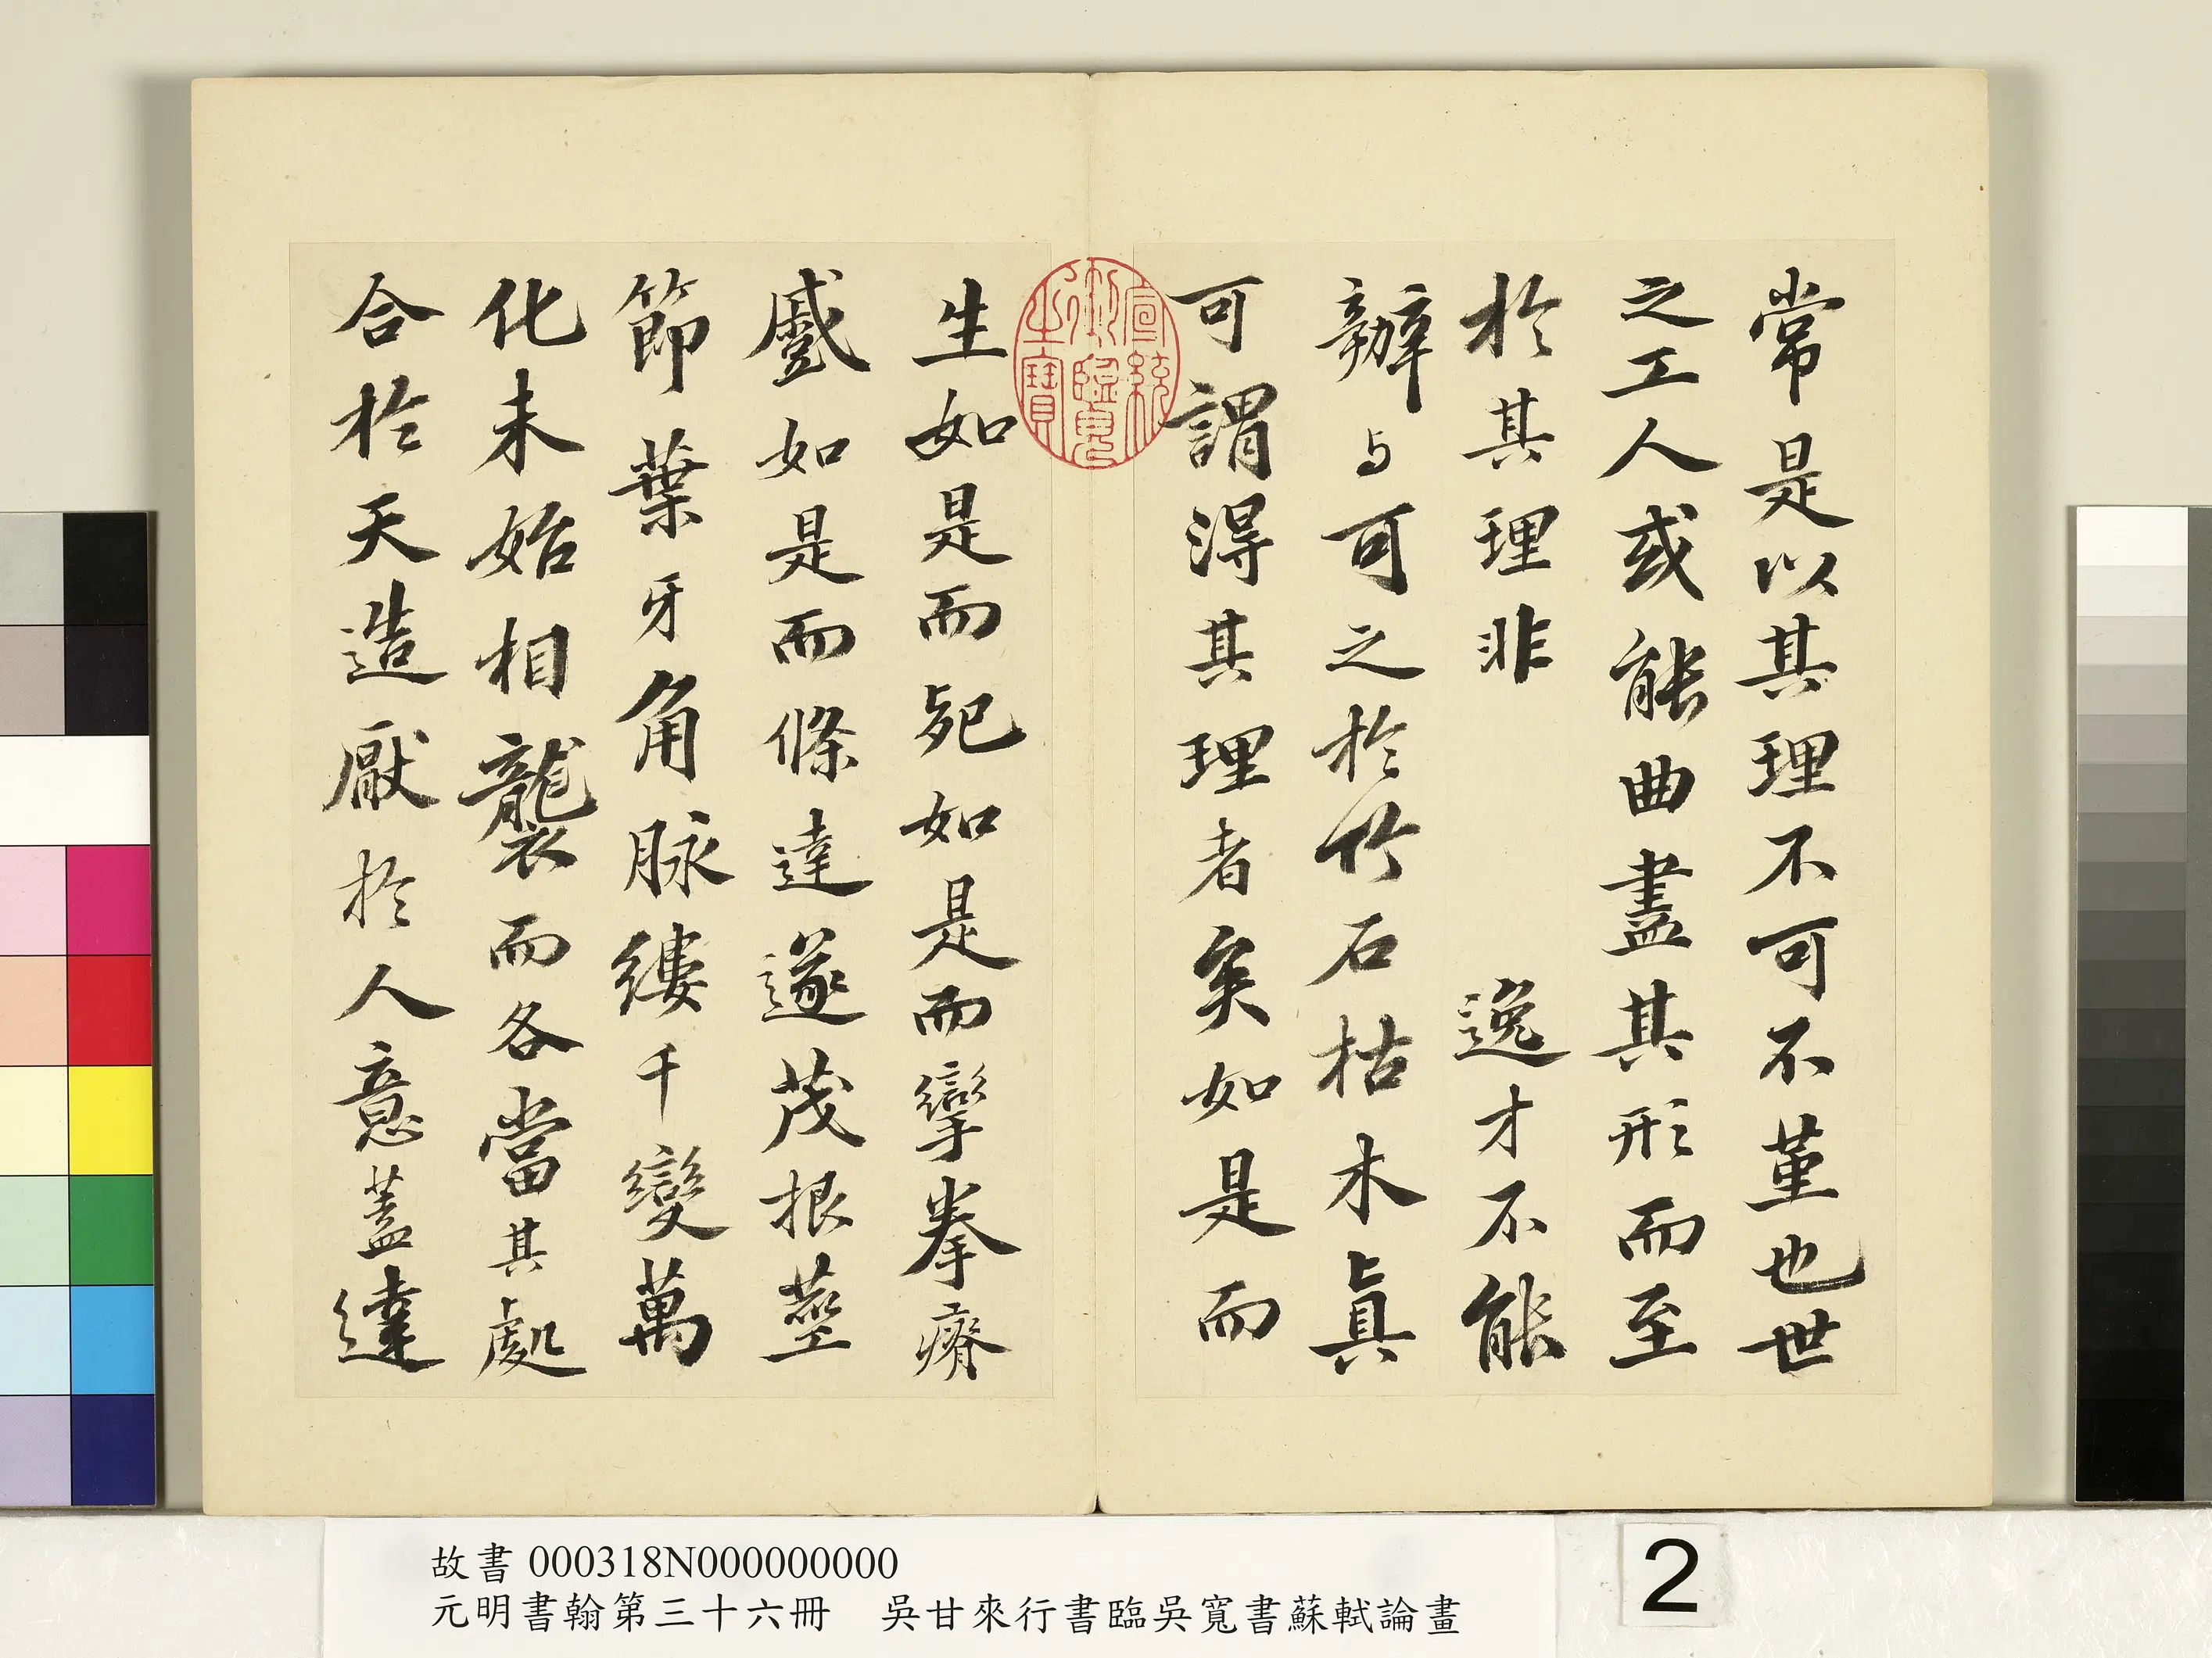 常是以其理不可不堇也世
之工人或能曲盡其形而至
於其理非 逸才不能
辦与可之於竹石枯木真
可謂得其理者矣如是而
生如是而死如是而攣拳瘠
蹙如是而條達遂茂根莖
節葉牙角脉縷千變萬
化未始相襲而各當其處
合於天造厭於人意蓋達
宣統御覽之寶
故書 000318N000000000
元明書翰第三十六冊 吳甘來行書臨吳寬書蘇軾論畫
2